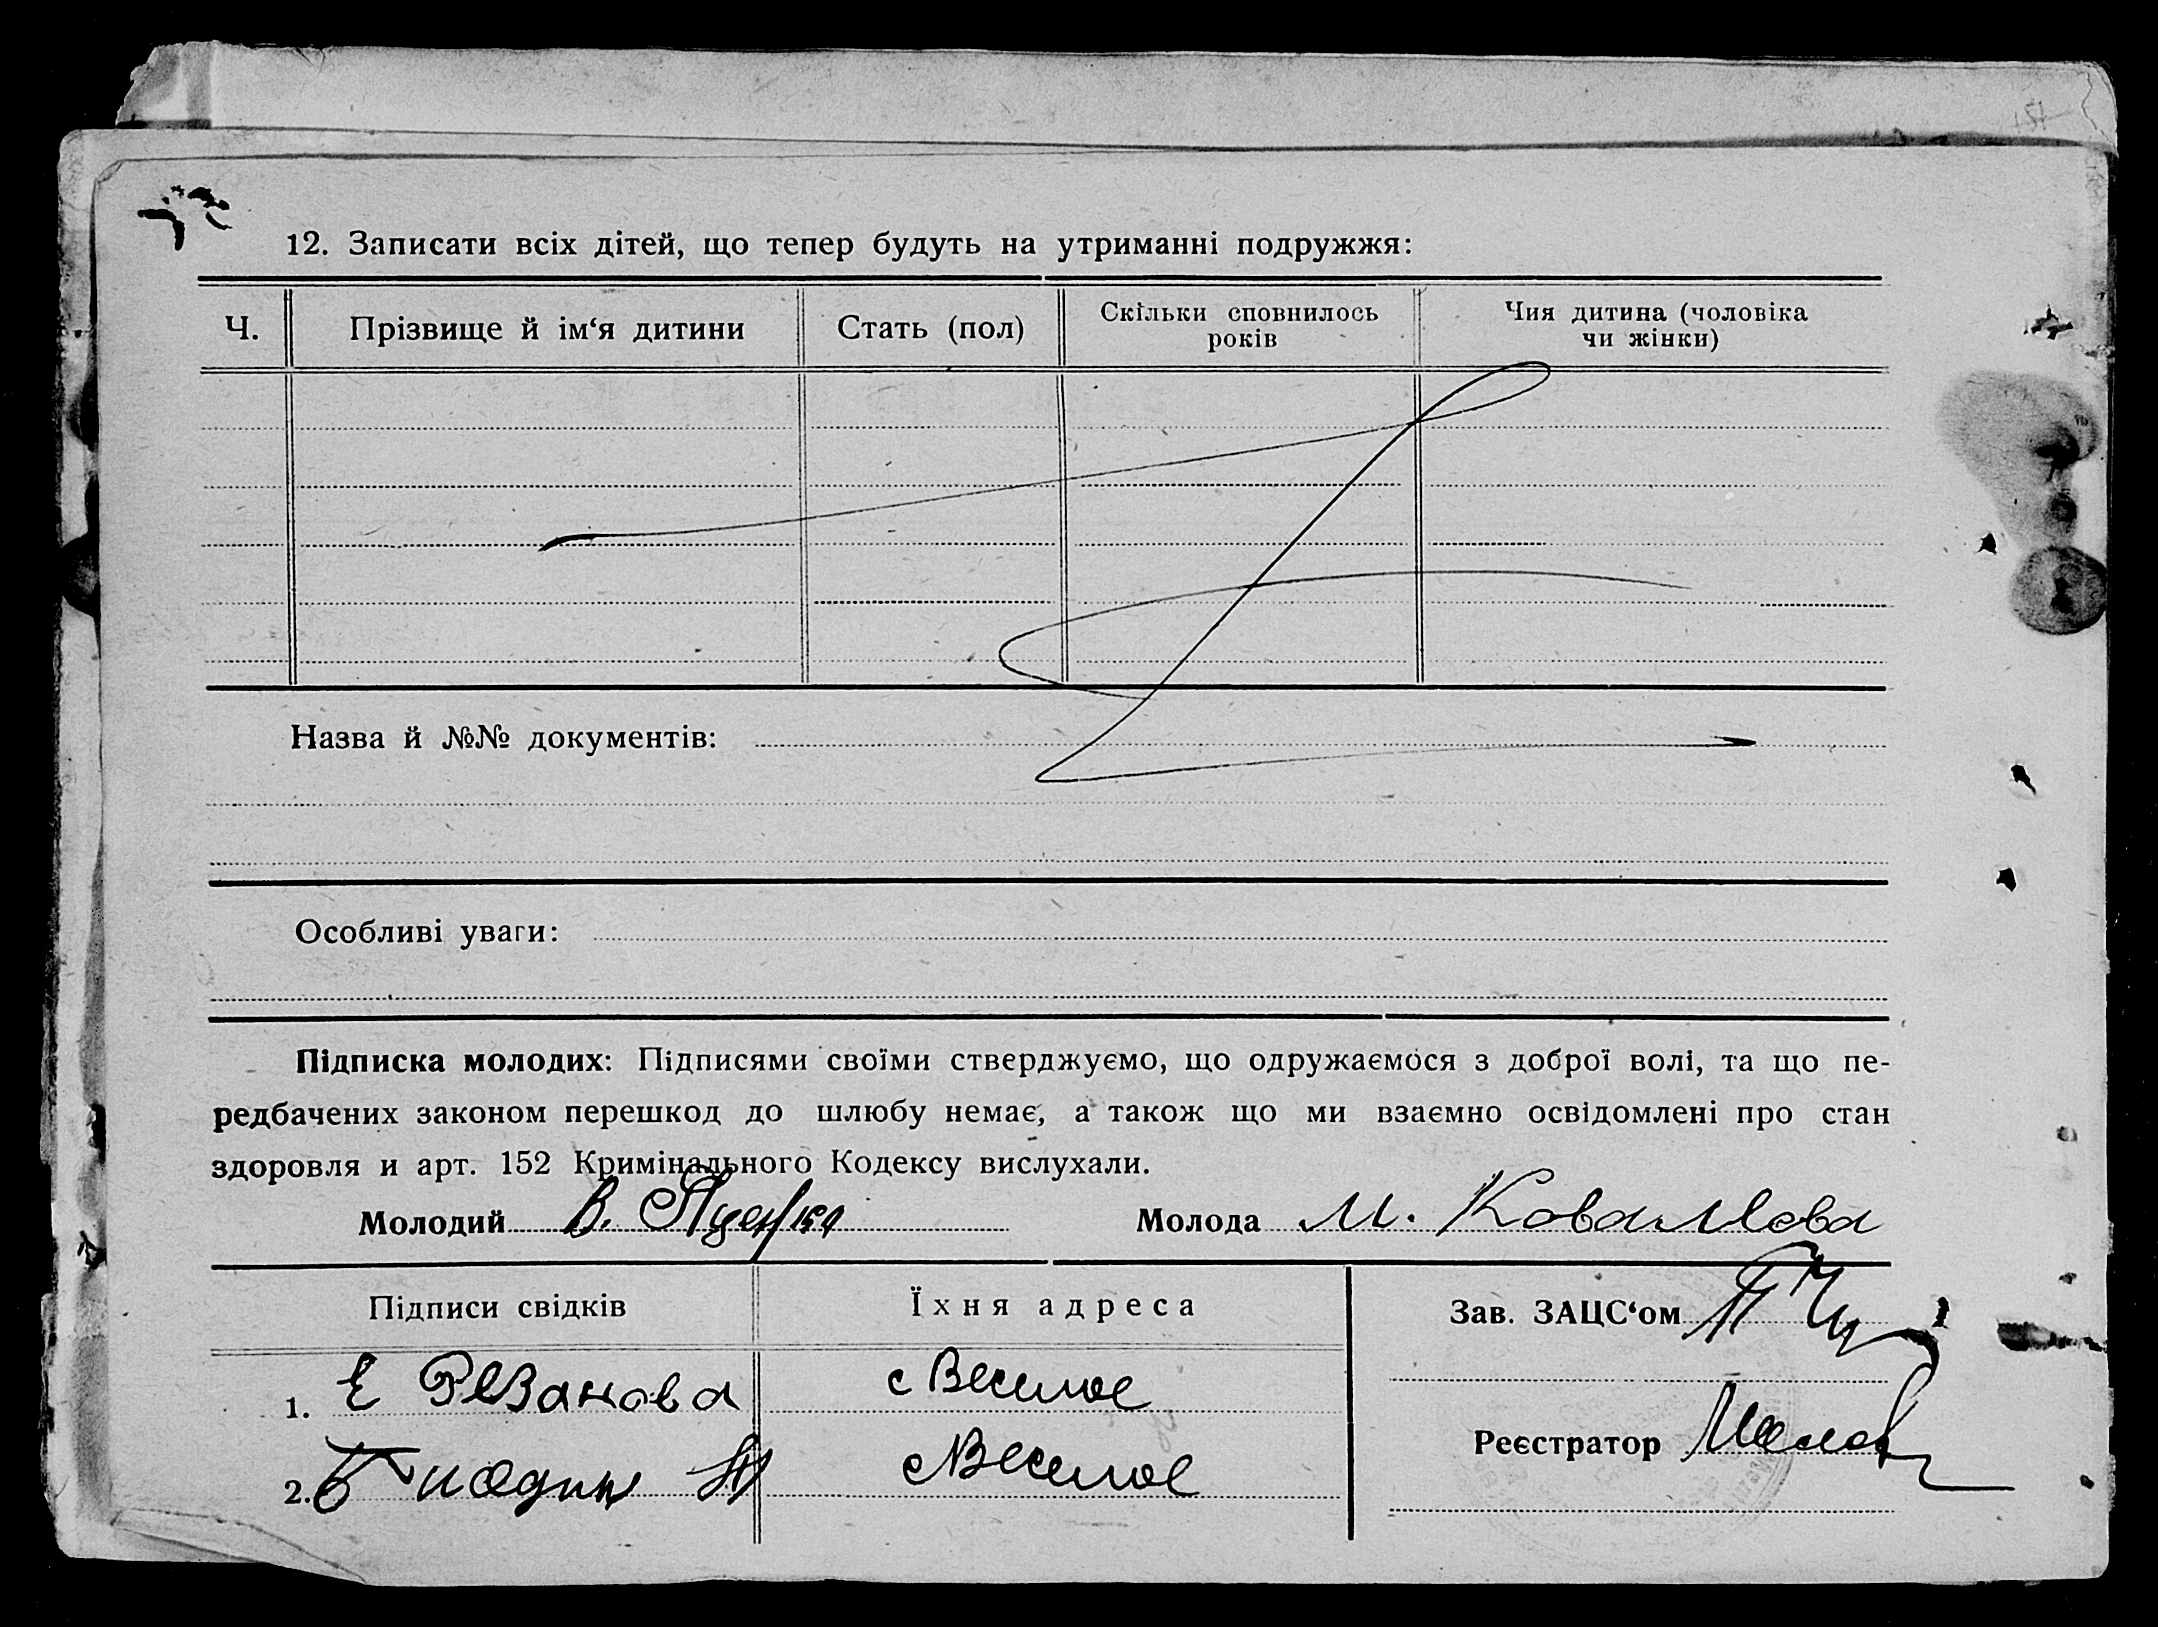 12. Записати всіх дітей, що тепер будуть на утриманні подружжя:
Ч. Прізвище й ім‘я дитини Стать (пол) Скільки сповнилось років Чия дитина (чоловіка чи жінки)
Назва й №№ документів:
Особливі уваги:
Підписка молодих: Підписями своїми стверджуємо, що одружаємося з доброї волі, та що пе-
редбачених законом перешкод до шлюбу немає, а також що ми взаємно освідомлені про стан
здоровля и арт. 152 Кримінального Кодексу вислухали.
Молодий В. Яценко Молода М. Ковалева
Підписи свідків Їхня адреса Зав. ЗАЦС‘ом
1. Е Резанова с Веселое
Реєстратор
2. с Веселое